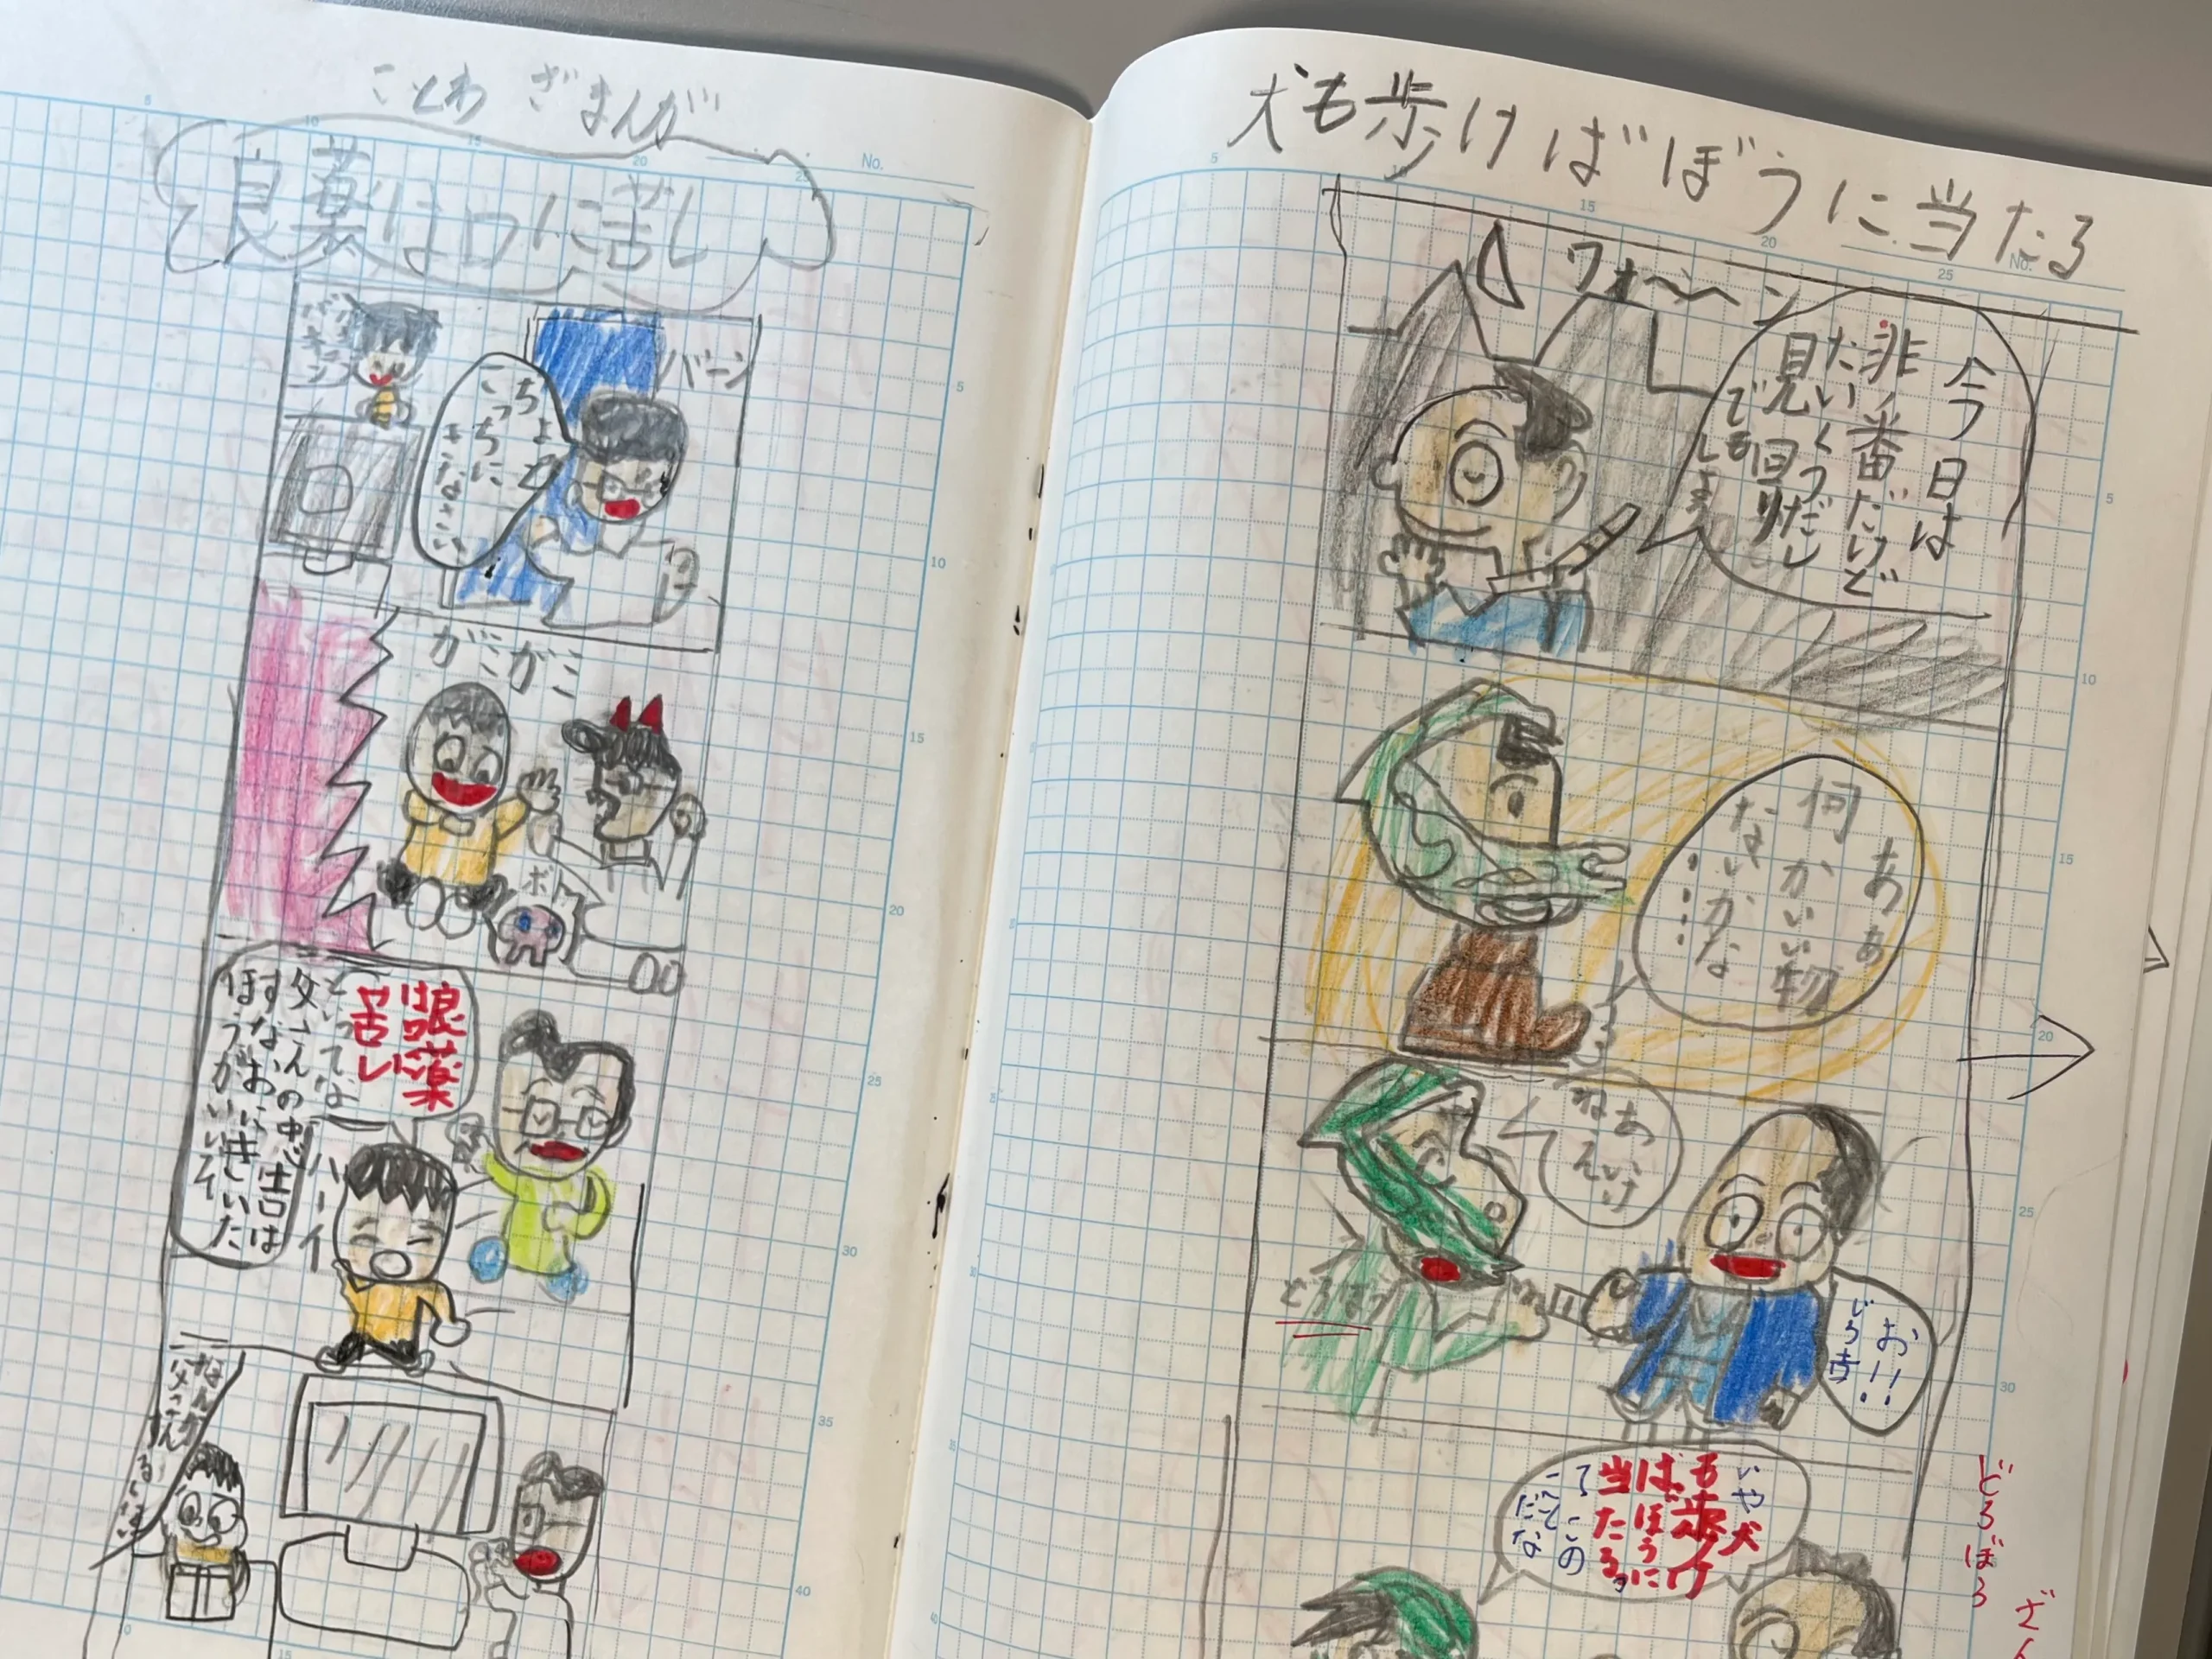 ことわざまんが
良薬は口に苦し
バーン
ちょっと
こっちに
きなさい
ガミガミ
良薬
は口に
苦し
といってな
父さんの忠告は
すなおにきいた
ほうがいいぞ
ハーイ
なんか
父さん
犬も歩けばぼうに当たる
ワォ〜〜ン
今日は
非番だけど
たいくつだし
見回り
でもしよう
あぁ
何かいい物
ないかな
‥‥‥
あいけ
ねえ
どろぼう
お!!
じろ吉!
いや犬
も歩け
ばぼうに
当たる。
てこの
ことだな
どろぼう